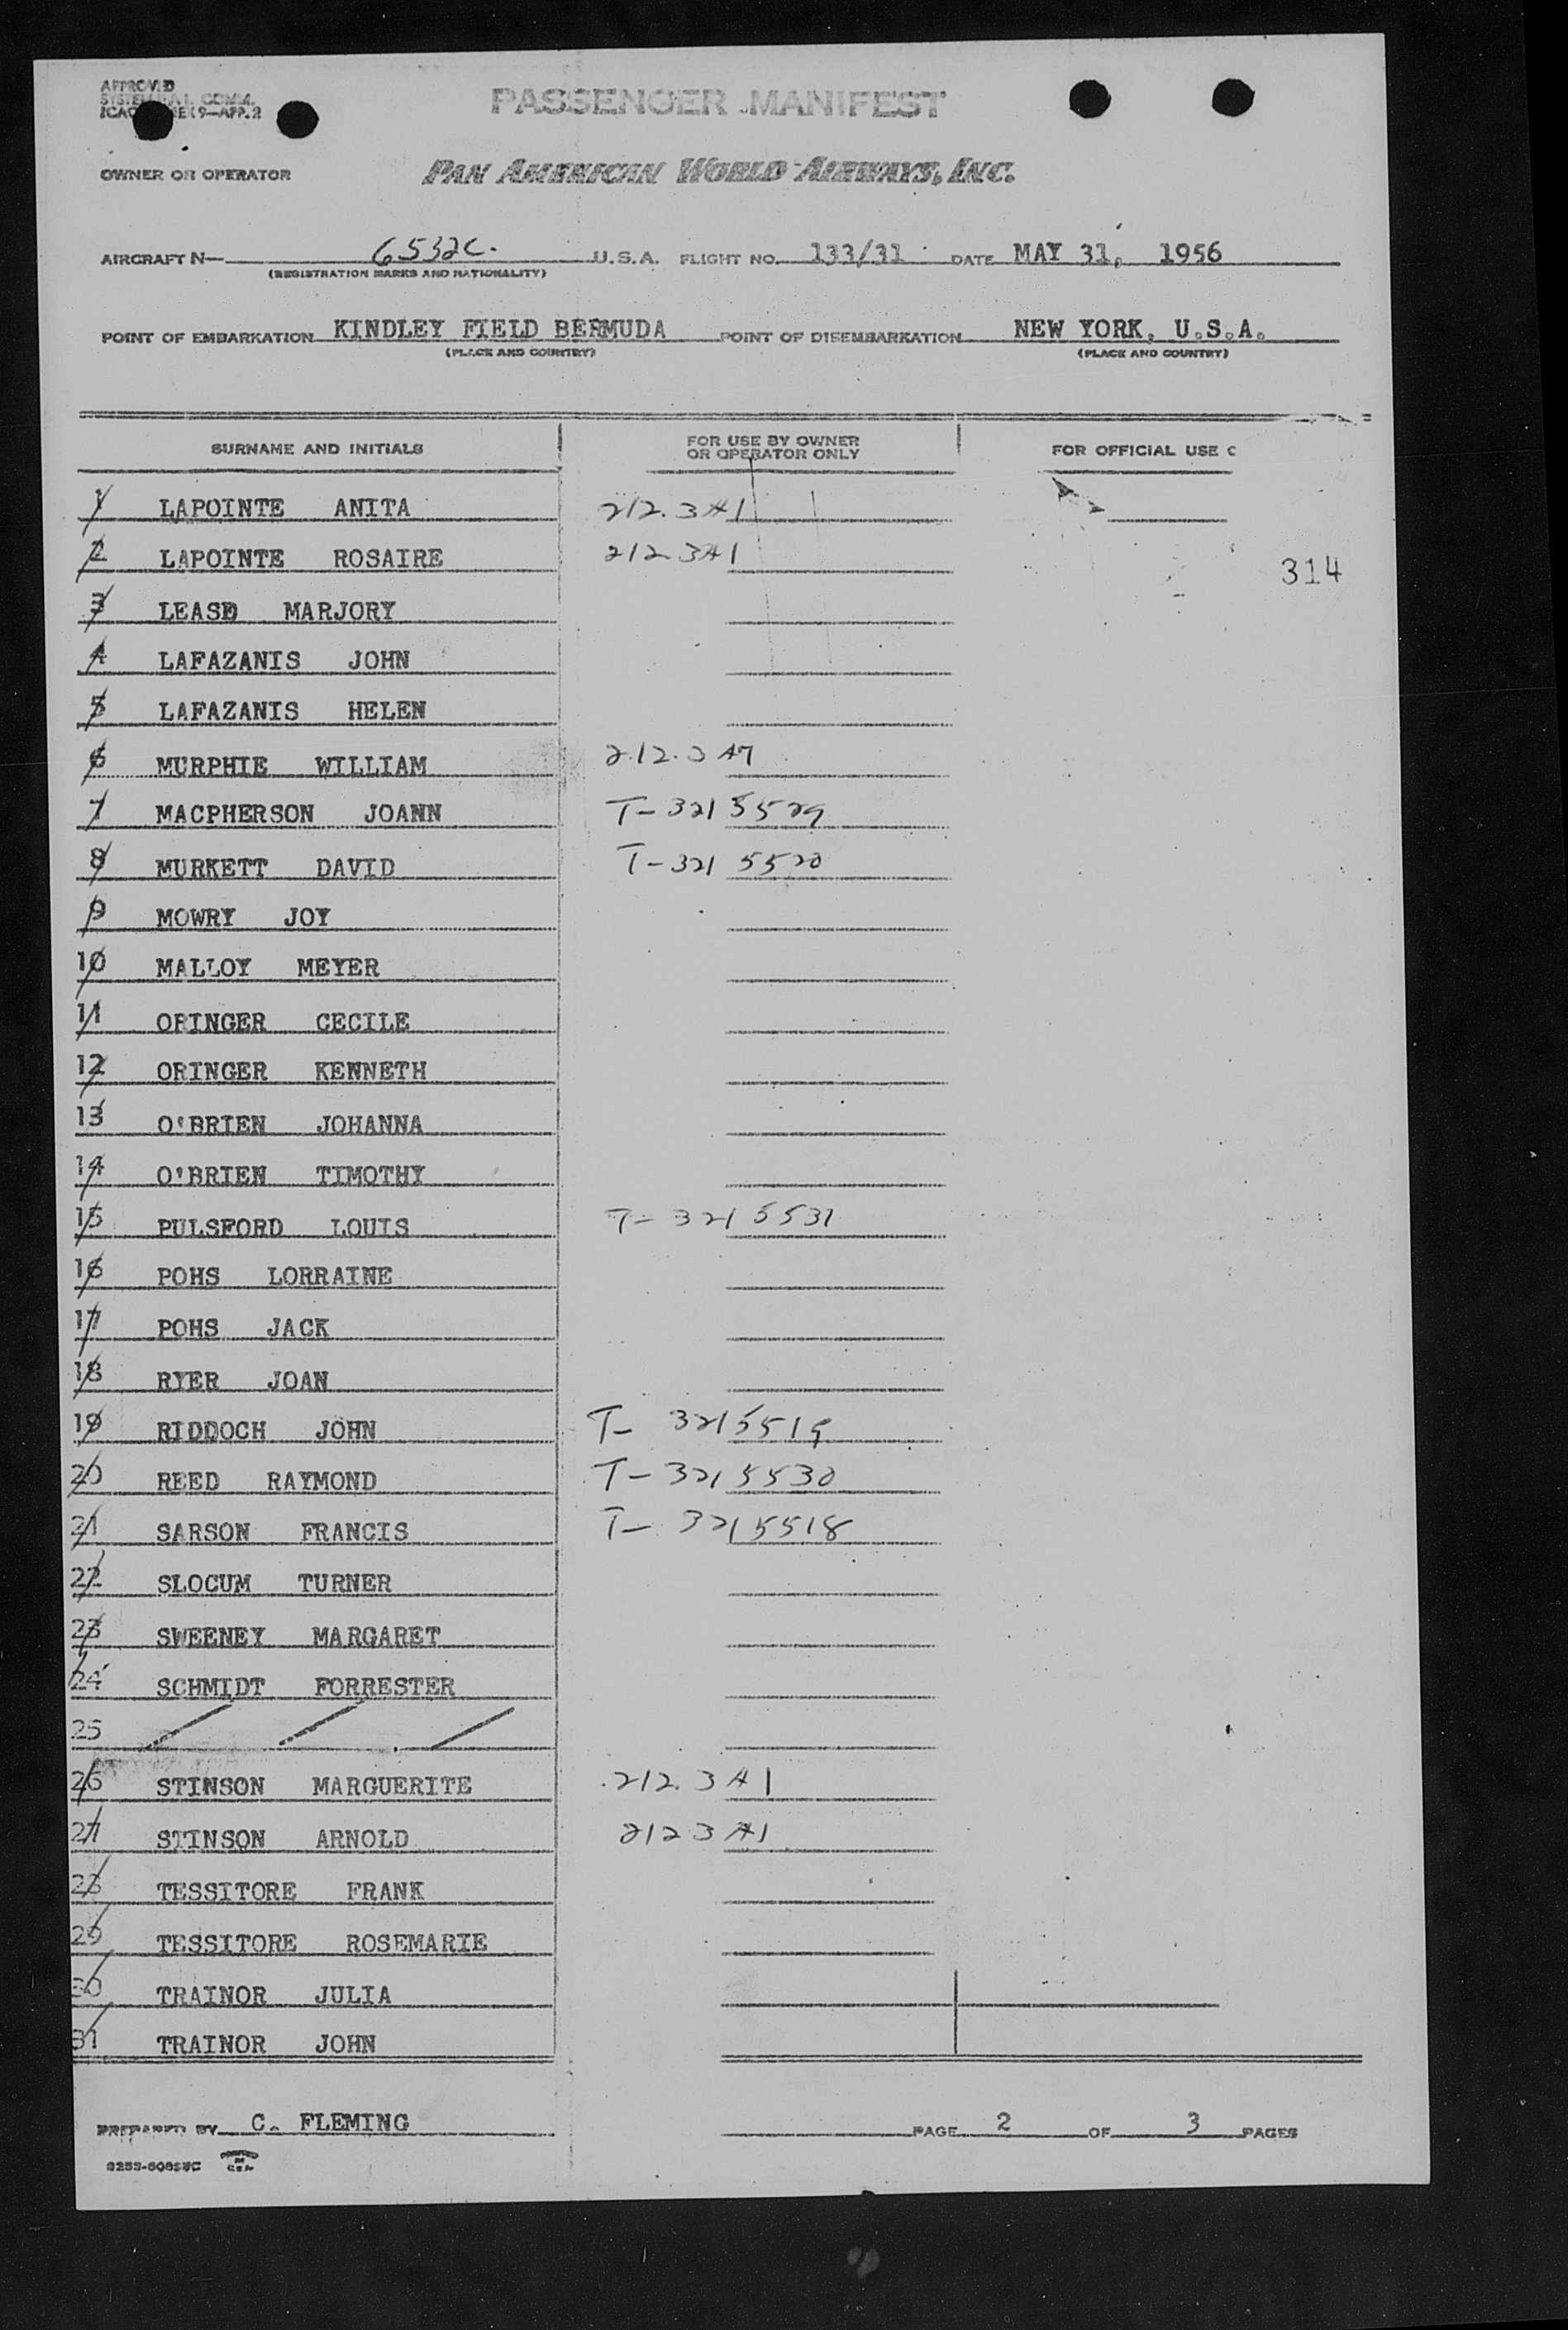 APPROVED
PASSENGER MANIFEST
OWNER OR OPERATOR PAN AMERICAN WORLD AIRWAYS, INC.
AIRCRAFT N— 6532C. U.S.A. FLIGHT NO. 133/31 DATE MAY 31, 1956
(REGISTRATION MARKS AND NATIONALITY)
POINT OF EMBARKATION KINDLEY FIELD BERMUDA POINT OF DISEMBARKATION NEW YORK, U.S.A.
(PLACE AND COUNTRY) (PLACE AND COUNTRY)
SURNAME AND INITIALS FOR USE BY OWNER OR OPERATOR ONLY FOR OFFICIAL USE
1 LAPOINTE ANITA 212.3A1
2 LAPOINTE ROSAIRE 2123A1
314
3 LEASE MARJORY
4 LAFAZANIS JOHN
5 LAFAZANIS HELEN
6 MURPHIE WILLIAM 212.3A7
7 MACPHERSON JOANN T-3215529
8 MURKETT DAVID T-3215520
9 MOWRY JOY
10 MALLOY MEYER
11 ORINGER CECILE
12 ORINGER KENNETH
13 O'BRIEN JOHANNA
14 O'BRIEN TIMOTHY
15 PULSFORD LOUIS T-3215531
16 POHS LORRAINE
17 POHS JACK
18 RYER JOAN
19 RIDDOCH JOHN T-3215519
20 REED RAYMOND T-3215530
21 SARSON FRANCIS T-3215518
22 SLOCUM TURNER
23 SWEENEY MARGARET
24 SCHMIDT FORRESTER
25
26 STINSON MARGUERITE 212.3A1
27 STINSON ARNOLD 2123A1
28 TESSITORE FRANK
29 TESSITORE ROSEMARIE
30 TRAINOR JULIA
31 TRAINOR JOHN
PREPARED BY C. FLEMING PAGE 2 OF 3 PAGES